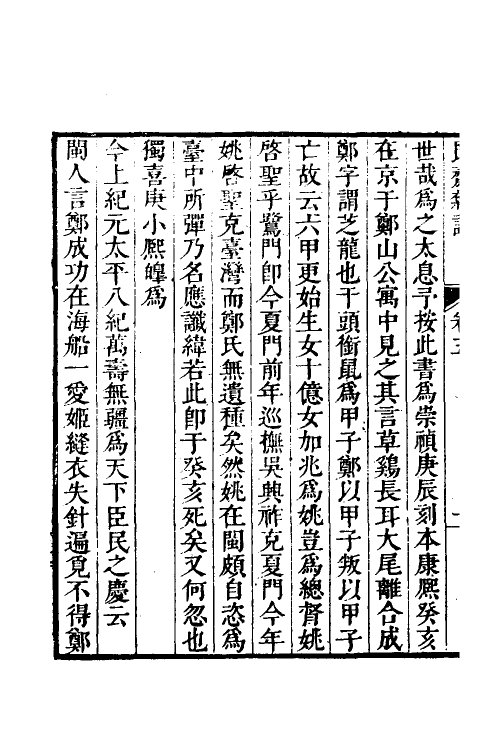 世哉爲之太息予按此書爲崇禎庚辰刻本康熙癸亥
在京于鄭山公寓中見之其言草鷄長耳大尾離合成
鄭字謂芝龍也干頭銜鼠爲甲子鄭以甲子叛以甲子
亡故云六甲更始生女十億女加兆爲姚豈爲總督姚
啓聖乎鷺門卽今夏門前年巡撫吳興祚克夏門今年
姚啓聖克臺灣而鄭氏無遺種矣然姚在閩頗自恣爲
臺中所彈乃名應讖緯若此卽于癸亥死矣又何忽也
獨喜庚小熙皞爲
今上紀元太平八紀萬壽無疆爲天下臣民之慶云
閩人言鄭成功在海船一愛姬縫衣失針遍覓不得鄭